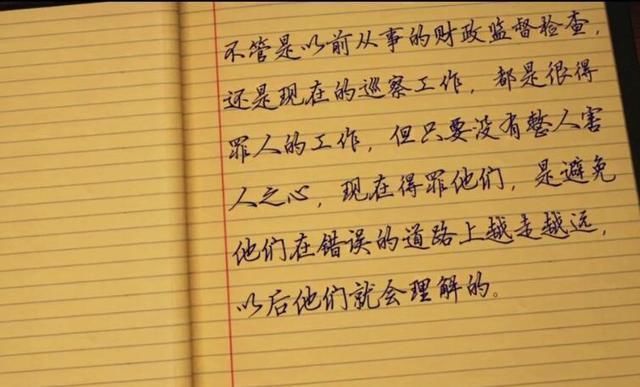 不管是以前从事的财政监督检查，
还是现在的巡察工作，都是很得
罪人的工作，但只要没有整人害
人之心，现在得罪他们，是避免
他们在错误的道路上越走越远，
以后他们就会理解的。